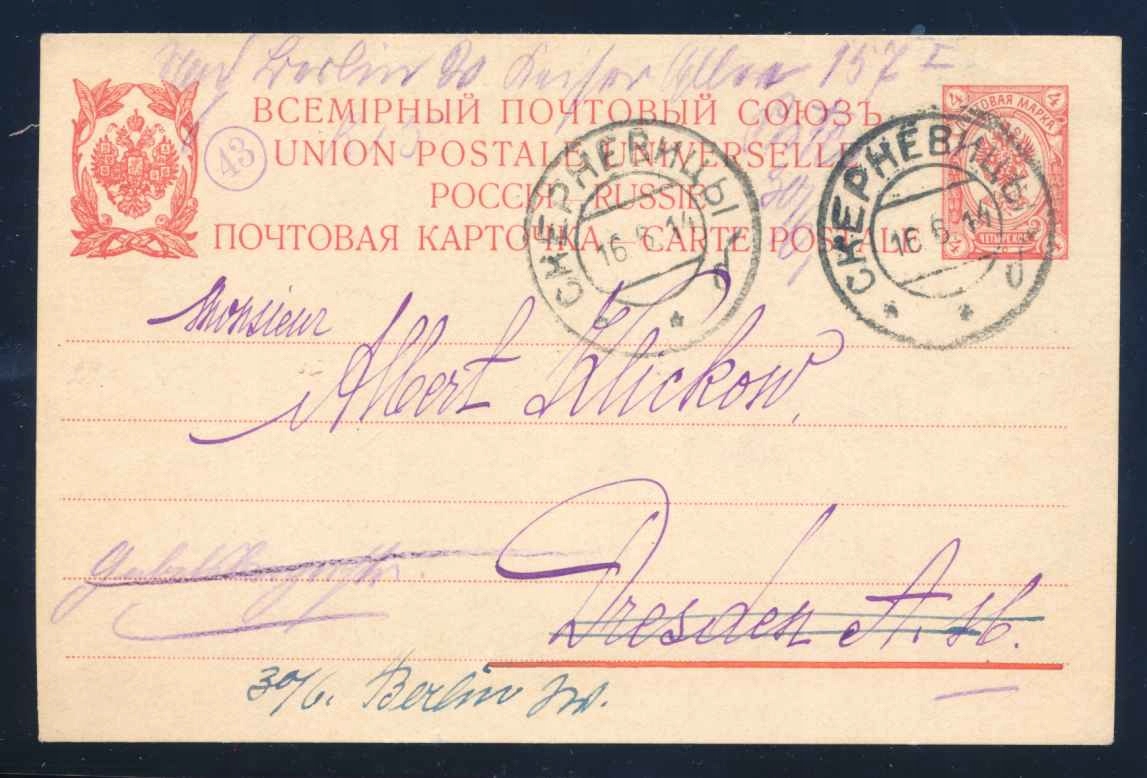 Berlin Kaiser Allee 157 I
ВСЕМІРНЫЙ ПОЧТОВЫЙ СОЮЗЪ.
43
UNION POSTALE UNIVERSELLE
РОССІЯ RUSSIE
ПОЧТОВАЯ КАРТОЧКА. CARTE POSTALE
4 ПОЧТОВАЯ МАРКА 4
ЧЕТЫРЕ КОП.
СКЕРНЕВИЦЫ
16 6 14
СКЕРНЕВИЦЫ
16 6 14
Monsieur
Albert Klickow,
Dresden A. 16.
30/6. Berlin W.